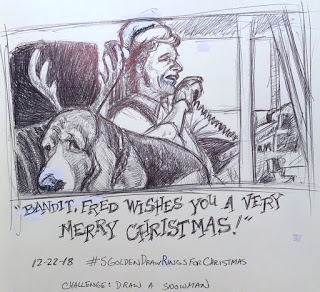 "BANDIT, FRED WISHES YOU A VERY
MERRY CHRISTMAS!"
12-22-18 #SGOLDENDRAWRINGSFORCHRISTMAS
CHALLENGE: DRAW A SNOWMAN